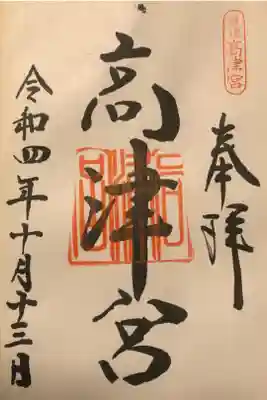 高津宮
奉拝
高津宮
令和四年十月十三日